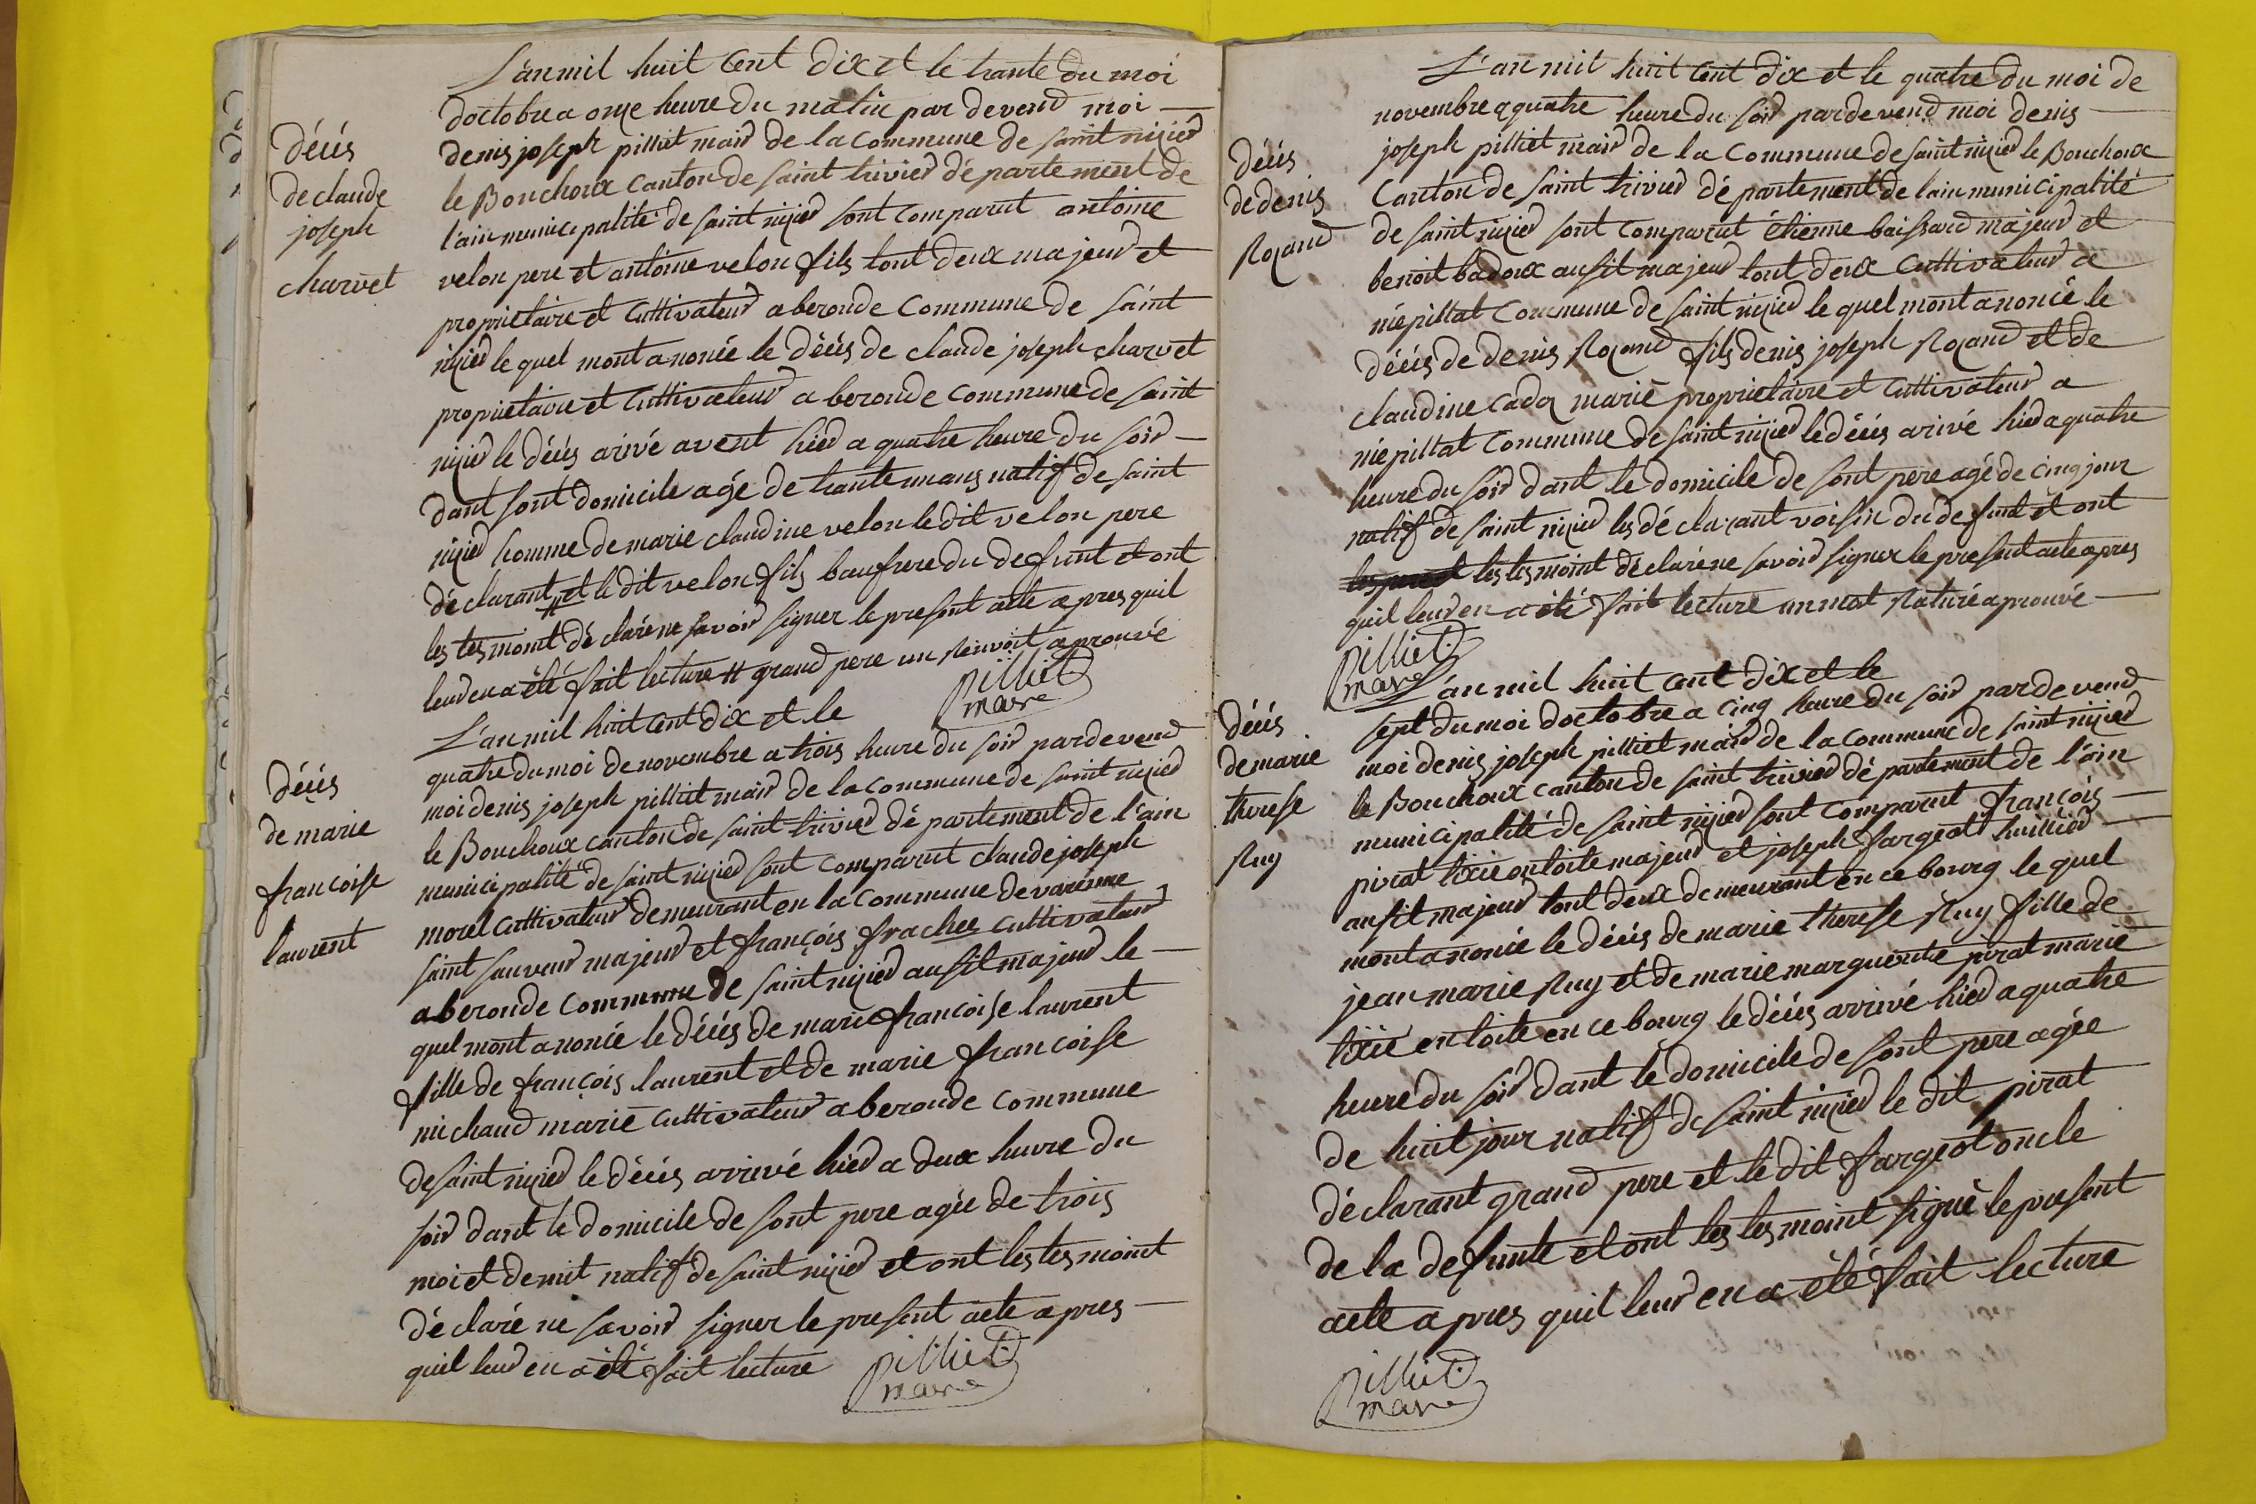 L'an mil huit cent dix et le trante du moi
doctobre a onze heure du matin par devend moi
décés
de claude
joseph
charvet
denis joseph pilliet maire de la commune de saint nizier
le Bouchoux canton de saint trivier département de
l'ain municipalité de saint nizier sont comparut antoine
velon pere et antoine velon fils tout deux majeur et
propriétaire et cultivateur a beronde commune de saint
nizier le quel mont anoncé le décés de claude joseph charvet
propriétaire et cultivateur a beronde commune de saint
nizier le décés arivé avent hier a quatre heure du soir
dant sont domicile agé de trante un ans natif de saint
nizier homme de marie claudine velon le dit velon pere
déclarant # et le dit velon fils baufrere du defunt et ont
les tesmoint déclaré ne savoir signer le present acte apres quil
leur en a été fait lecture # grand pere un renvoit aprouvé
pilliet
maire
L'an mil huit cent dix et le
quatre du moi de novembre a trois heure du soir par devend
décés
de marie
francoise
laurent
moi denis joseph pilliet maire de la commune de saint nizier
le Bouchoux canton de saint trivier département de l'ain
municipalité de saint nizier sont comparut claude joseph
morel cultivateur demeurant en la commune de varenne
saint sauveur majeur et françois frachet cultivateur
a beronde commune de saint nizier ausit majeur le
quel mont anoncé le décés de marie francoise laurent
fille de françois laurent et de marie francoise
michaud marié cultivateur a beronde commune
de saint nizier le décés arrivé hier a deux heure du
soir dant le domicile de sont pere agée de trois
moi et demit natif de saint nizier et ont les tesmoint
déclaré ne savoir signer le present acte apres
quil leur en a été fait lecture
pilliet
maire
L'an mil huit cent dix et le quatre du moi de
novembre a quatre heure du soir par devend moi denis
décés
de denis
Rozand
joseph pilliet maire de la commune de saint nizier le Bouchoux
canton de saint trivier département de l'ain municipalité
de saint nizier sont comparut étienne baissard majeur et
benoit badoux ausit majeur tout deux cultivateur a
niépillat commune de saint nizier le quel mont anoncé le
décés de denis Rozand fils denis joseph Rozand et de
claudine cadoz marié propriétaire et cultivateur a
niépillat commune de saint nizier le décés arivé hier a quatre
heure du soir dant le domicile de sont pere agé de cinq jour
natif de saint nizier les déclarant voisin du defunt et ont
les tesmoint déclaré ne savoir signer le present acte apres
quil leur en a été fait lecture un mot raturé aprouvé
pilliet
maire
L'an mil huit cent dix et le
sept du moi doctobre a cinq heure du soir par devend
décés
de marie
therese
Ruy
moi denis joseph pilliet maire de la commune de saint nizier
le Bouchoux canton de saint trivier département de l'ain
municipalité de saint nizier sont comparut françois
pirat tixié en toile majeur et joseph fargeot huillier
ausit majeur tout deux demeurant en ce bourg le quel
mont anoncé le décés de marie therese Ruy fille de
jean marie Ruy et de marie marguerite pirat marié
tixié en toile en ce bourg le décés arrivé hier a quatre
heure du soir dant le domicile de sont pere agée
de huit jour natif de saint nizier le dit pirat
déclarant grand pere et le dit fargeot oncle
de la defunte et ont les tesmoint signé le present
acte apres quil leur en a été fait lecture
pilliet
maire